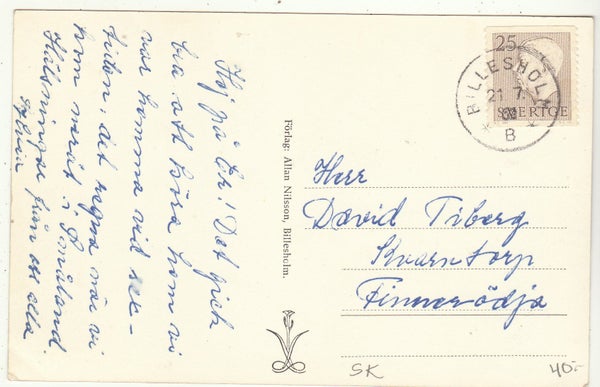 Hej på Er! Det gick
bra att köra hem vi
var hemma vid
tiden, det regna när vi
kom neråt i Småland
Hälsningar från oss alla
Sylvia
Förlag: Allan Nilsson, Billesholm.
25
SVERIGE
BILLESHOLM
21 7.
B
Herr
David Tiberg
Kvarntorp
Finnerödja
SK
40:-